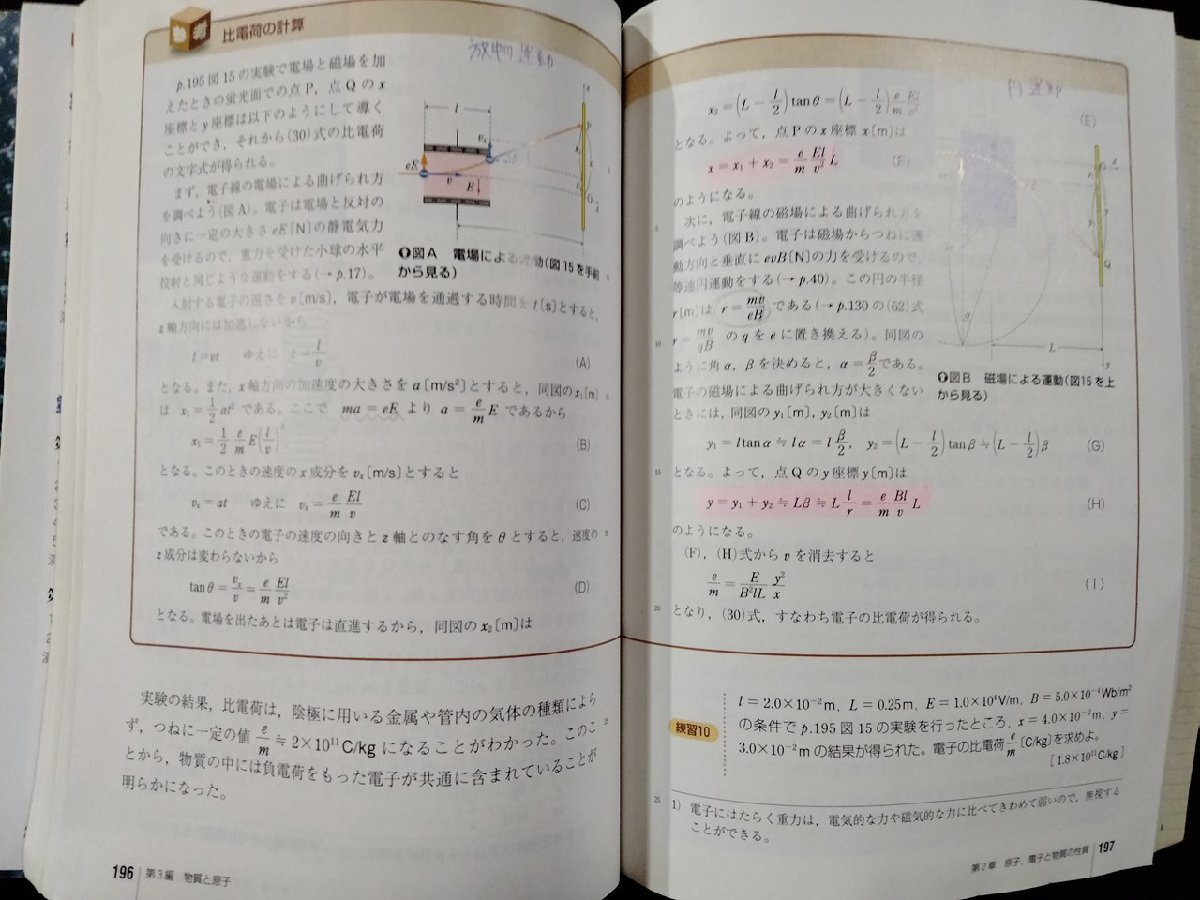 参考
比電荷の計算
放物運動
p.195 図15の実験で電場と磁場を加
えたときの蛍光面での点P，点Qのx
座標とy座標は以下のようにして導く
ことができ，それから(30)式の比電荷
の文字式が得られる。
まず，電子線の電場による曲げられ方
を調べよう(図A)。電子は電場と反対の
向きに一定の大きさ eE〔N〕の静電気力
を受けるので，重力を受けた小球の水平
投射と同じような運動をする(→p.17)。
l
eE
v
E
vx
図A 電場による運動(図15を手前
から見る)
入射する電子の速さを v〔m/s〕，電子が電場を通過する時間を t〔s〕とすると，
z軸方向には加速しないから
l=vt ゆえに t=l/v (A)
となる。また，x軸方向の加速度の大きさを a〔m/s²〕とすると，同図の x₁〔m〕
は x₁=1/2 at² である。ここで ma=eE より a=e/m E であるから
x₁=1/2 e/m E(l/v)² (B)
となる。このときの速度のx成分を vx〔m/s〕とすると
vx=at ゆえに vx=e/m El/v (C)
である。このときの電子の速度の向きとz軸とのなす角をθとすると，速度の
z成分は変わらないから
tanθ=vx/v=e/m El/v² (D)
となる。電場を出たあとは電子は直進するから，同図の x₂〔m〕は
実験の結果，比電荷は，陰極に用いる金属や管内の気体の種類によら
ず，つねに一定の値 e/m≒2×10¹¹C/kg になることがわかった。このこ
とから，物質の中には負電荷をもった電子が共通に含まれていることが
明らかになった。
196 第3編 物質と原子
x₂=(L−l/2)tanθ=(L−l/2) e/m El/v² (E)
となる。よって，点Pのx座標 x〔m〕は
x=x₁+x₂=e/m El/v² L (F)
のようになる。
次に，電子線の磁場による曲げられ方を
調べよう(図B)。電子は磁場からつねに運
動方向と垂直に evB〔N〕の力を受けるので，
等速円運動をする(→p.40)。この円の半径
r〔m〕は r=mv/eB である(→p.130の(62)式
r=mv/qB の q を e に置き換える)。同図の
ように角α，βを決めると，α=β/2 である。
電子の磁場による曲げられ方が大きくない
ときには，同図の y₁〔m〕，y₂〔m〕は
円運動
L
y
図B 磁場による運動(図15を上
から見る)
y₁=l tanα≒lα=l β/2，y₂=(L−l/2)tanβ≒(L−l/2)β (G)
となる。よって，点Qのy座標 y〔m〕は
y=y₁+y₂≒Lβ≒L l/r=e/m Bl/v L (H)
のようになる。
(F)，(H)式から v を消去すると
e/m=E/B²lL y²/x (I)
となり，(30)式，すなわち電子の比電荷が得られる。
練習10
l=2.0×10⁻²m，L=0.25m，E=1.0×10⁴V/m，B=5.0×10⁻⁴Wb/m²
の条件で p.195 図15の実験を行ったところ，x=4.0×10⁻²m，y=
3.0×10⁻²m の結果が得られた。電子の比電荷 e/m〔C/kg〕を求めよ。
[1.8×10¹¹C/kg]
1) 電子にはたらく重力は，電気的な力や磁気的な力に比べてきわめて弱いので，無視する
ことができる。
第2章 原子，電子と物質の性質 197